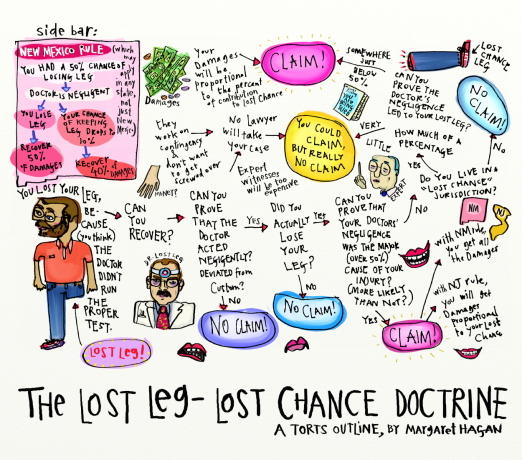 side bar:
NEW MEXICO RULE
(which may apply in any state, not just New Mexico)
YOU HAD A 50% CHANCE OF
LOSING LEG
DOCTOR IS NEGLIGENT
YOU LOSE
LEG
RECOVER
50%
OF DAMAGES
YOUR CHANCE
OF KEEPING
LEG DROPS TO
RECOVER
40% OF DAMAGES
Damages
Your
Damages
will be
proportional
to the percent
of contribution
to lost Chance
CLAIM!
SOMEWHERE
JUST
BELOW
50%
LOST
CHANCE
LEG
CAN YOU
PROVE THE
DOCTOR'S
NEGLIGENCE
LED TO YOUR LOST LEG?
NO
CLAIM!
No
they
work on
contingency
& don't
want to
get
screwed over
MONEY?
No Lawyer
will take
your case
Expert
witnesses
will be too
expensive
YOU COULD
CLAIM,
BUT REALLY
NO CLAIM
VERY
LITTLE
EXPERT
HOW MUCH OF A
PERCENTAGE
YES
DO YOU LIVE IN A
"LOST CHANCE"
JURISDICTION?
NO
NM
NJ
YOU LOST YOUR LEG,
BE-
CAUSE
(you think)
THE
DOCTOR
DIDN'T
RUN
THE
PROPER
TEST.
LOST LEG!
CAN
YOU
RECOVER?
DR. LOST LEG
CAN YOU
PROVE
THAT THE
DOCTOR
ACTED
NEGLIGENTLY?
DEVIATED from
Custom?
Yes
No
NO CLAIM!
DID
YOU
ACTUALLY
LOSE
YOUR
LEG?
Yes
No
NO CLAIM!
CAN YOU
PROVE THAT
YOUR DOCTORS'
NEGLIGENCE
WAS THE MAJOR
(OVER 50%)
CAUSE OF YOUR
INJURY?
(MORE LIKELY
THAN NOT?)
Yes
CLAIM!
with NM rule,
you get all
the Damages
with NJ rule,
you will get
Damages
proportional
to your Lost
Chance
THE LOST LEG - LOST CHANCE DOCTRINE
A TORTS OUTLINE, BY MARGARET HAGAN